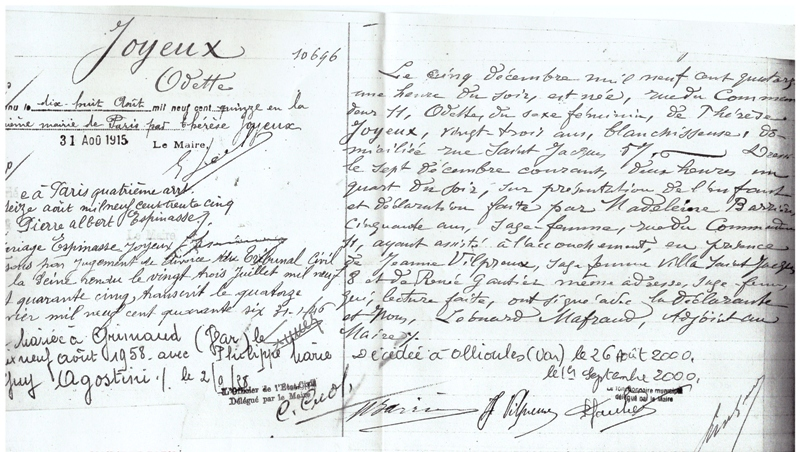 Joyeux
10696
Odette
dix huit Août mil neuf cent quinze en la
mairie de Paris par Thérèse Joyeux
31 AOÛ 1915
Le Maire,
e à Paris quatrième arrt
seize août mil neuf cent trente cinq
Pierre Albert Espinasse
Mariage Espinasse Joyeux
par jugement de divorce du Tribunal Civil
la Seine rendu le vingt trois Juillet mil neuf
quarante cinq, transcrit le quatorze
mil neuf cent quarante six
Mariée à Grimaud (Var) le
neuf août 1958. avec Philippe Marie
Guy Agostini
L'Officier de l'Etat-Civil
Délégué par le Maire
Le cinq décembre mil neuf cent quatorze
une heure du soir, est née, rue du Comman
deur 11, Odette, du sexe féminin, de Thérèse
Joyeux, vingt trois ans, blanchisseuse, do-
miciliée rue Saint Jacques
le sept décembre courant, deux heures un
quart du soir, sur présentation de l'enfant
et déclaration faite par Madeleine
cinquante ans, sage-femme, rue du Commandeur
11, ayant assisté à l'accouchement en présence
de Jeanne Vilpreux, sage femme Villa Saint Jacques
8 et de René Gautier même adresse,
qui, lecture faite, ont signé avec la déclarante
et Nous, Léonard Mafraud, Adjoint au
Maire
Décédée à Ollioules (Var) le 26 Août 2000.
le 1er Septembre 2000.
Le fonctionnaire municipal
délégué par le Maire